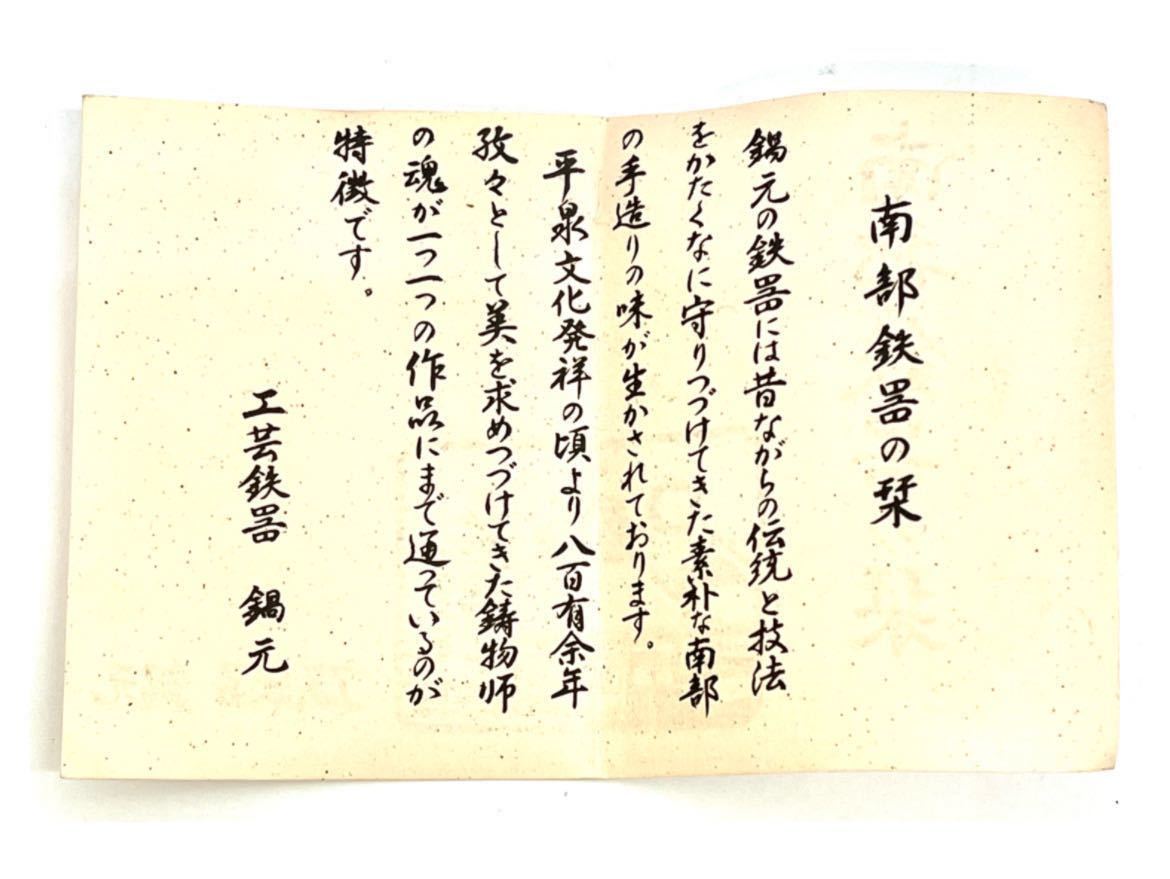 南部鉄器の栞
鍋元の鉄器には昔ながらの伝統と技法
をかたくなに守りつづけてきた素朴な南部
の手造りの味が生かされております。
平泉文化発祥の頃より八百有余年
孜々として美を求めつづけてきた鋳物師
の魂が一つ一つの作品にまで通っているのが
特徴です。
工芸鉄器 鍋元